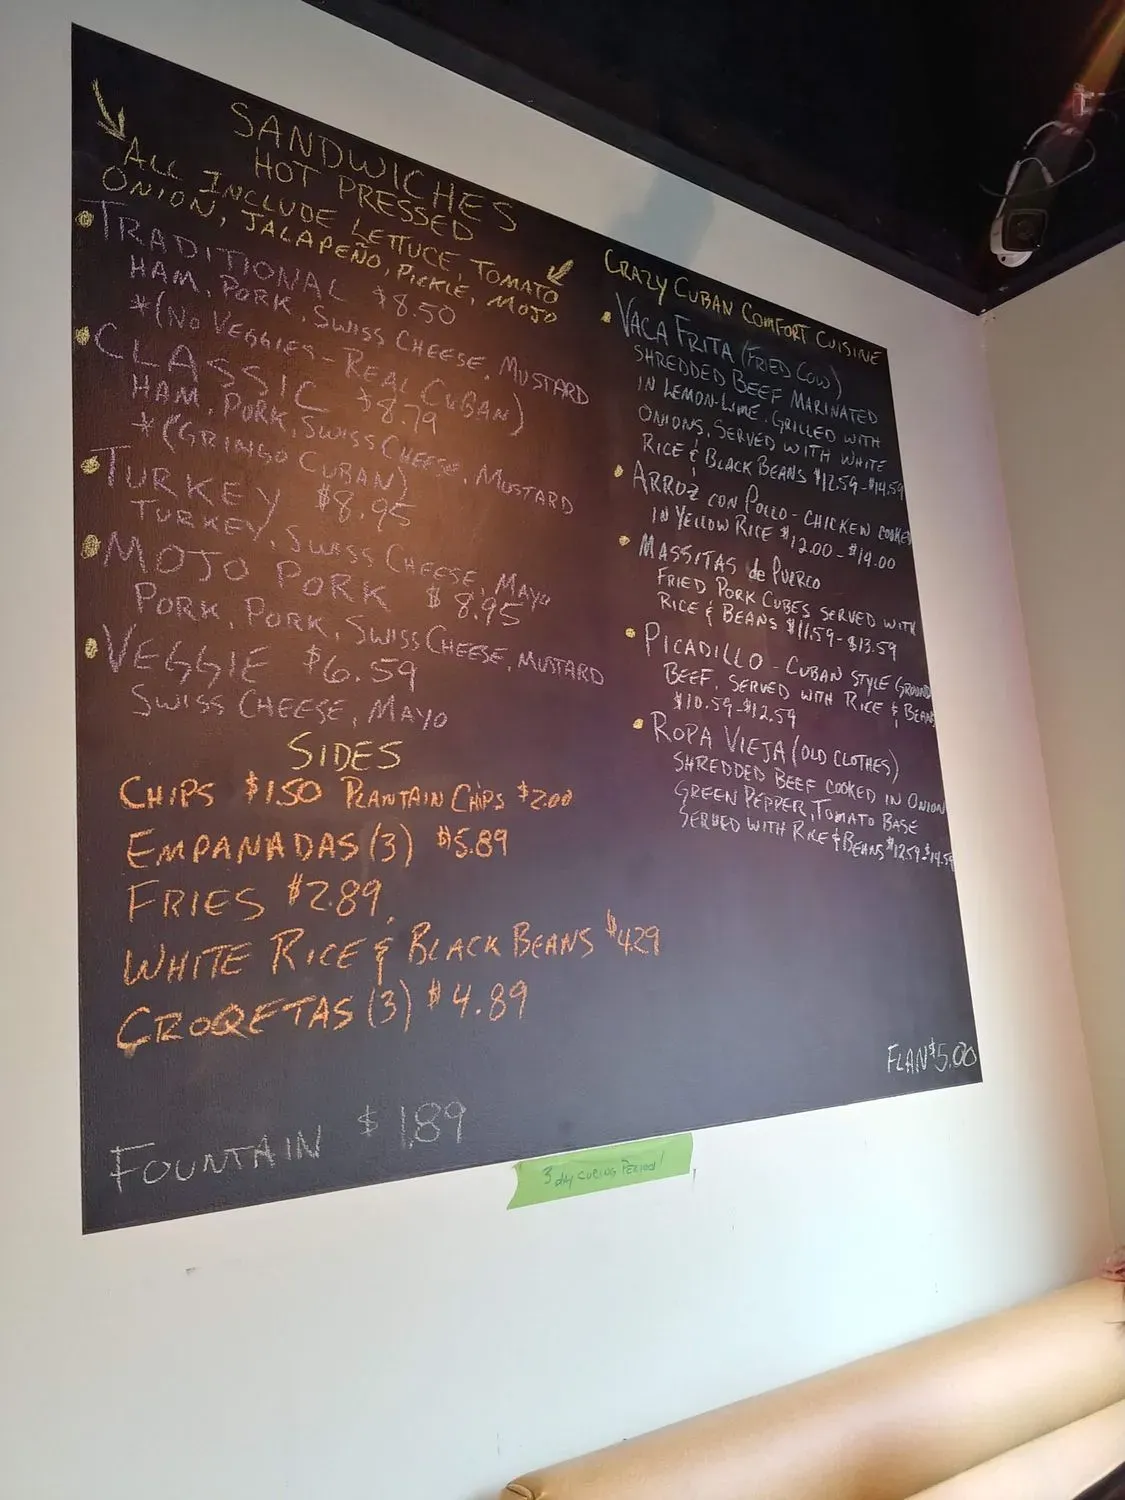 SANDWICHES
HOT PRESSED
ALL INCLUDE LETTUCE, TOMATO
ONION, JALAPEÑO, PICKLE, MOJO
TRADITIONAL $8.50
HAM, PORK, SWISS CHEESE, MUSTARD
*(NO VEGGIES - REAL CUBAN)
CLASSIC $8.79
HAM, PORK, SWISS CHEESE, MUSTARD
*(GRINGO CUBAN)
TURKEY $8.95
TURKEY, SWISS CHEESE, MAYO
MOJO PORK $8.95
PORK, PORK, SWISS CHEESE, MUSTARD
VEGGIE $6.59
SWISS CHEESE, MAYO
SIDES
CHIPS $1.50 PLANTAIN CHIPS $2.00
EMPANADAS (3) $5.89
FRIES $2.89
WHITE RICE & BLACK BEANS $4.29
CROQETAS (3) $4.89
FOUNTAIN $1.89
CRAZY CUBAN COMFORT CUISINE
VACA FRITA (FRIED COW)
SHREDDED BEEF MARINATED
IN LEMON-LIME. GRILLED WITH
ONIONS. SERVED WITH WHITE
RICE & BLACK BEANS $12.59-$14.59
ARROZ CON POLLO - CHICKEN COOKED
IN YELLOW RICE $12.00-$14.00
MASSITAS de PUERCO
FRIED PORK CUBES SERVED WITH
RICE & BEANS $11.59-$13.59
PICADILLO - CUBAN STYLE GROUND
BEEF, SERVED WITH RICE & BEANS
$10.59-$12.59
ROPA VIEJA (OLD CLOTHES)
SHREDDED BEEF COOKED IN ONION
GREEN PEPPER, TOMATO BASE
SERVED WITH RICE & BEANS $12.59-$14.59
FLAN $5.00
3 day CURING PERIOD!